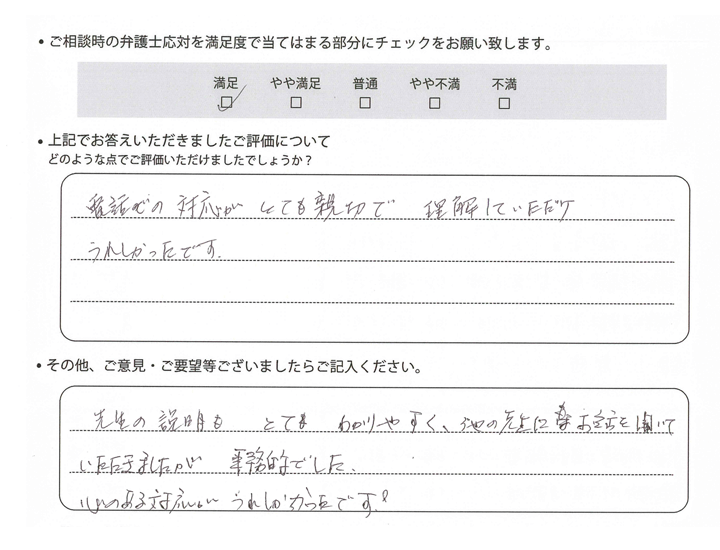 ・ご相談時の弁護士応対を満足度で当てはまる部分にチェックをお願い致します。
満足 やや満足 普通 やや不満 不満
・上記でお答えいただきましたご評価について
どのような点でご評価いただけましたでしょうか？
電話での対応が とても親切で 理解していただけ
うれしかったです。
・その他、ご意見・ご要望等ございましたらご記入ください。
先生の説明も とても わかりやすく、他の先生に お話を聞いて
いただきましたが 事務的でした。
心のある対応が うれしかったです。